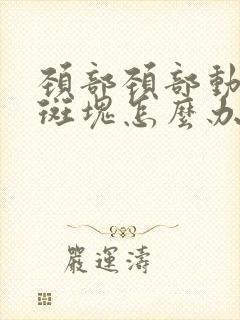 頚部頚部動
斑塊怎麼办
嚴運濤